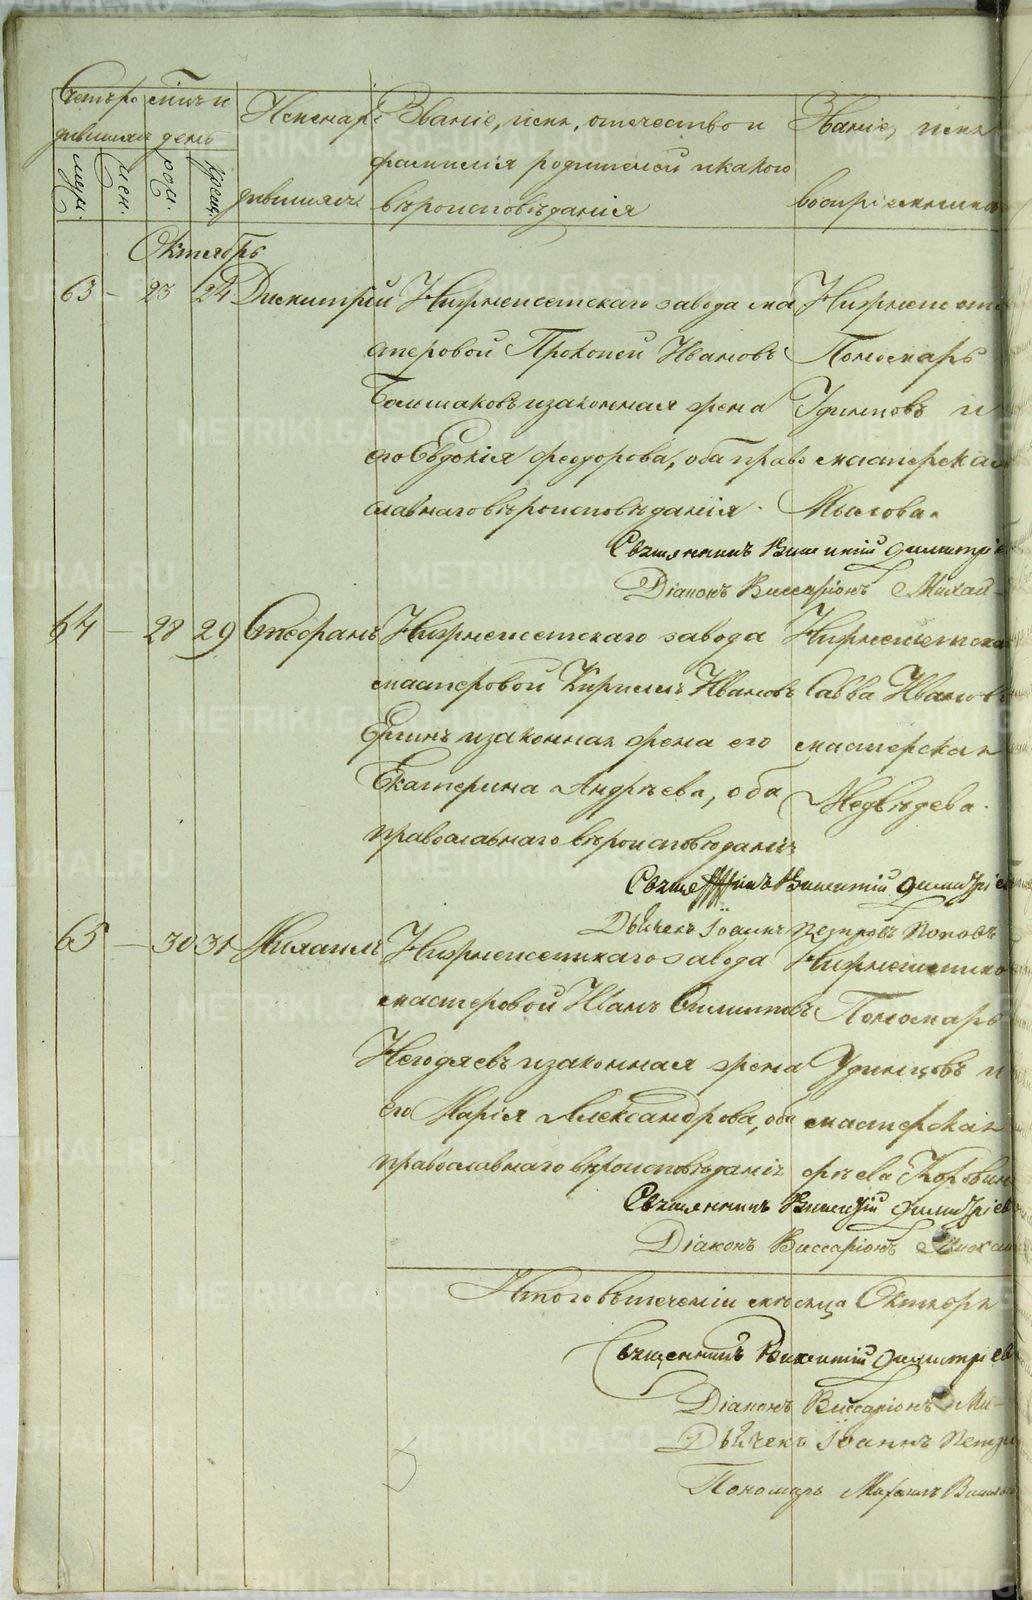 Счетъ родившихся
день
Имена родившихся
Званіе, имя, отечество и
фамилія родителей и какого
вѣроисповѣданія
Званіе, имя
воспріемник
муж.
жен.
рож.
крещ.
Октябрь
63 — 23 24 Димитрій
Нижнесетскаго завода ма
стеровой Прокопій Ивановъ
Большаковъ и законная жена
его Евдокія Феодорова, оба право
славнаго вѣроисповѣданія.
Пономарь
Удинцовъ и
мастерская
Мылова.
Священникъ Викентій Димитріе
Діаконъ Виссаріонъ Михай
64 — 28 29 Стефанъ
Нижнесетскаго завода
мастеровой Кириллъ Ивановъ
и законная жена его
Екатерина Андреева, оба
православнаго вѣроисповѣданія
Савва Иванов
мастерская
Медвѣдева.
Священникъ Викентій Димитріе
Дьячекъ Іоаннъ Петровъ Поповъ
65 — 30 31 Михаилъ
Нижнесетскаго завода
мастеровой Иванъ Филиповъ
Негодяевъ и законная жена
его Марія Александрова, оба
православнаго вѣроисповѣданія
Пономарь
Удинцовъ и
мастерская
Коровин
Священникъ Викентій Димитріев
Діаконъ Виссаріонъ Михай
Итого въ теченіи мѣсяца Октября
Священникъ Викентій Димитріев
Діаконъ Виссаріонъ Ми-
Дьячекъ Іоаннъ Петро
Пономарь
METRIKI.GASO-URAL.RU